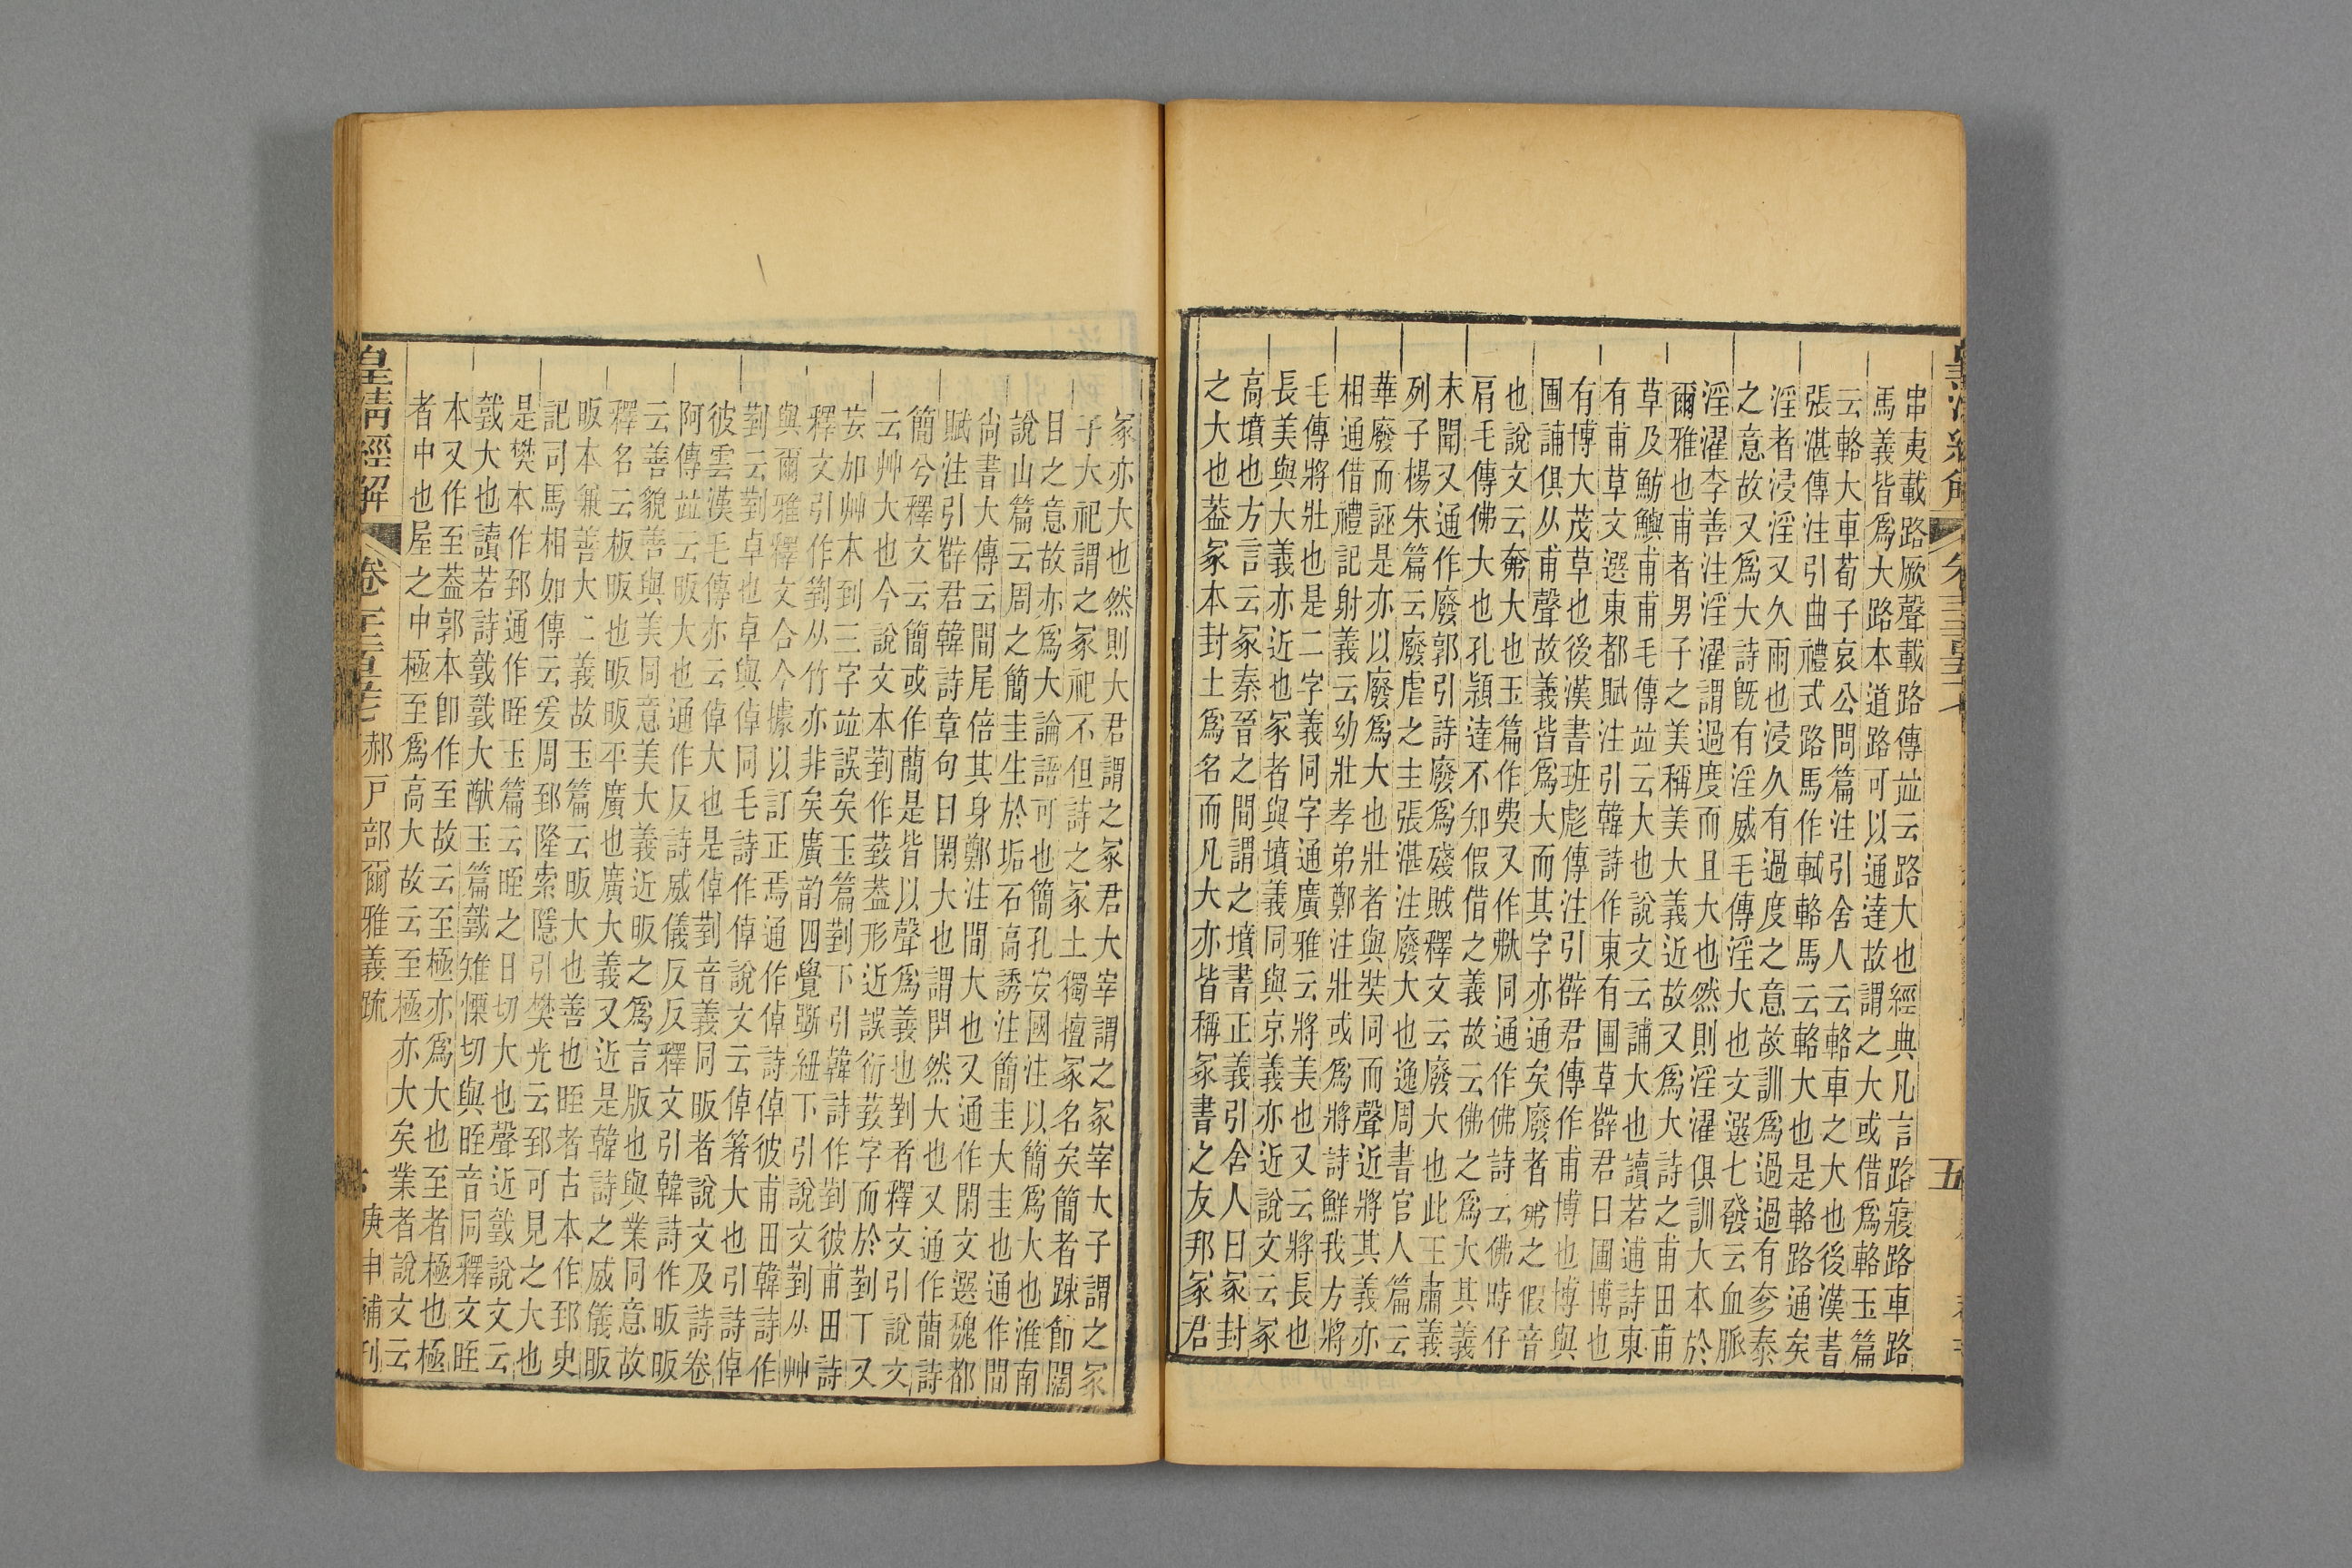 串夷載路厥聲載路傳竝云路大也經典凡言路寢路車路
馬義皆爲大路本道路可以通達故謂之大或借爲輅玉篇
云輅大車荀子哀公問篇注引舍人云輅車之大也後漢書
張湛傳注引曲禮式路馬作軾輅馬云輅大也是輅路通矣
淫者浸淫又久雨也浸久有過度之意故訓爲過過有奓泰
之意故又爲大詩旣有淫威毛傳淫大也文選七發云血脈
淫濯李善注淫濯謂過度而且大也然則淫濯俱訓大本於
爾雅也甫者男子之美稱美大義近故又爲大詩之甫田甫
草及魴鱮甫甫毛傳竝云大也說文云誧大也讀若逋詩東
有甫草文選東都賦注引韓詩作東有圃草薛君曰圃博也
有博大茂草也後漢書班彪傳注引薛君傳作甫博也博與
圃誧俱从甫聲故義皆爲大而其字亦通矣廢者之假音
也說文云大也玉篇作又作同通作佛詩云佛時仔
肩毛傳佛大也孔頴達不知假借之義故云佛之爲大其義
未聞又通作廢郭引詩廢爲殘賊釋文云廢大也此王肅義
列子楊朱篇云廢虐之主張湛注廢大也逸周書官人篇云
華廢而誣是亦以廢爲大也壯者與奘同而聲近將其義亦
相通借禮記射義云幼壯孝弟鄭注壯或爲將詩鮮我方將
毛傳將壯也是二字義同字通廣雅云將美也又云將長也
長美與大義亦近也冢者與墳義同與京義亦近說文云冢
高墳也方言云冢秦晉之間謂之墳書正義引舍人曰冢封
之大也葢冢本封土爲名而凡大亦皆稱冢書之友邦冢君
五
冢亦大也然則大君謂之冢君大宰謂之冢宰大子謂之冢
子大祀謂之冢祀不但詩之冢土獨擅冢名矣簡者踈節闊
目之意故亦爲大論語可也簡孔安國注以簡爲大也淮南
說山篇云周之簡圭生於垢石高誘注簡圭大圭也通作間
尚書大傳云間尾倍其身鄭注間大也又通作閑文選魏都
賦注引薛君韓詩章句曰閑大也謂閑然大也又通作蕳詩
簡兮釋文云簡或作蕳是皆以聲爲義也菿者釋文引說文
云艸大也今說文本菿作䓸葢形近誤衍䓸字而於菿丅又
妄加艸木到三字竝誤矣玉篇菿下引韓詩作菿彼甫田詩
釋文引作箌从竹亦非矣廣韵四覺斲紐下引說文菿从艸
與爾雅釋文合今據以訂正焉通作倬詩倬彼甫田韓詩作
菿云菿卓也卓與倬同毛詩作倬說文云倬箸大也引詩倬
彼雲漢毛傳亦云倬大也是倬菿音義同昄者說文及詩卷
阿傳竝云昄大也通作反詩威儀反反釋文引韓詩作昄昄
云善貌善與美同意美大義近昄之爲言版也與業同意故
釋名云板昄也昄昄平廣也廣大義又近是韓詩之威儀昄
昄本兼善大二義故玉篇云昄大也善也晊者古本作郅史
記司馬相如傳云爰周郅隆索隱引樊光云郅可見之大也
是樊本作郅通作晊玉篇云晊之日切大也聲近𢧜說文云
𢧜大也讀若詩𢧜𢧜大猷玉篇𢧜雉慄切與晊音同釋文晊
本又作至葢郭本卽作至故云至極亦爲大也至者極也極
者中也屋之中極至爲高大故云至極亦大矣業者說文云
皇清經解 卷 郝戶部爾雅義疏 庚申補刊